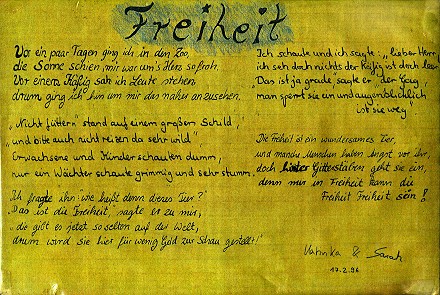 Freiheit
Vor ein paar Tagen ging ich in den Zoo,
die Sonne schien, mir war um's Herz so froh.
Vor einem Käfig sah ich Leute stehen,
drum ging ich hin um mir das näher anzusehen.
"Nicht füttern" stand auf einem großen Schild,
"und bitte auch nicht reizen da sehr wild"
Erwachsene und Kinder schauten dumm,
nur ein Wächter schaute grimmig und sehr stumm.
Ich fragte ihn "wie heißt denn dieses Tier?"
"Das ist die Freiheit", sagte er zu mir,
"die gibt es jetzt so selten auf der Welt,
drum wird sie hier für wenig Geld zur Schau gestellt!"
Ich schaute und ich sagte: "lieber Herr,
ich seh doch nichts der Käfig ist doch leer
"Das ist ja grade" sagte er "der Gag,
man sperrt sie ein und augenblicklich
ist sie weg"
Die Freiheit ist ein wundersames Tier,
und manche Menschen haben Angst vor ihr,
doch hinter Gitterstäben geht sie ein,
denn nur in Freiheit kann die
Freiheit Freiheit sein!
& Sarah
17.2.96